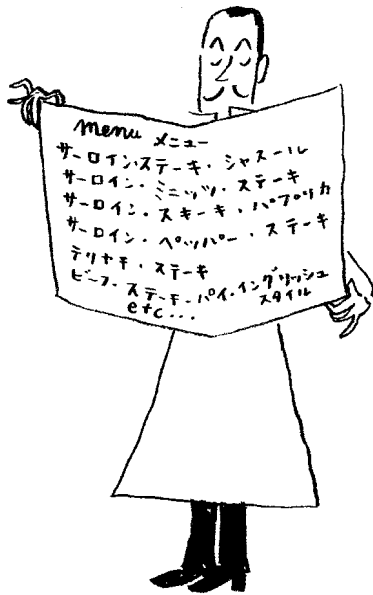 menu メニュー
サーロインステーキ・シャスール
サーロイン・ミニッツ・ステーキ
サーロイン・スキーキ・パプリカ
サーロイン・ペッパー・ステーキ
テリヤキ・ステーキ
ビーフ・ステーキ・パイ・イングリッシュ
スタイル
etc...